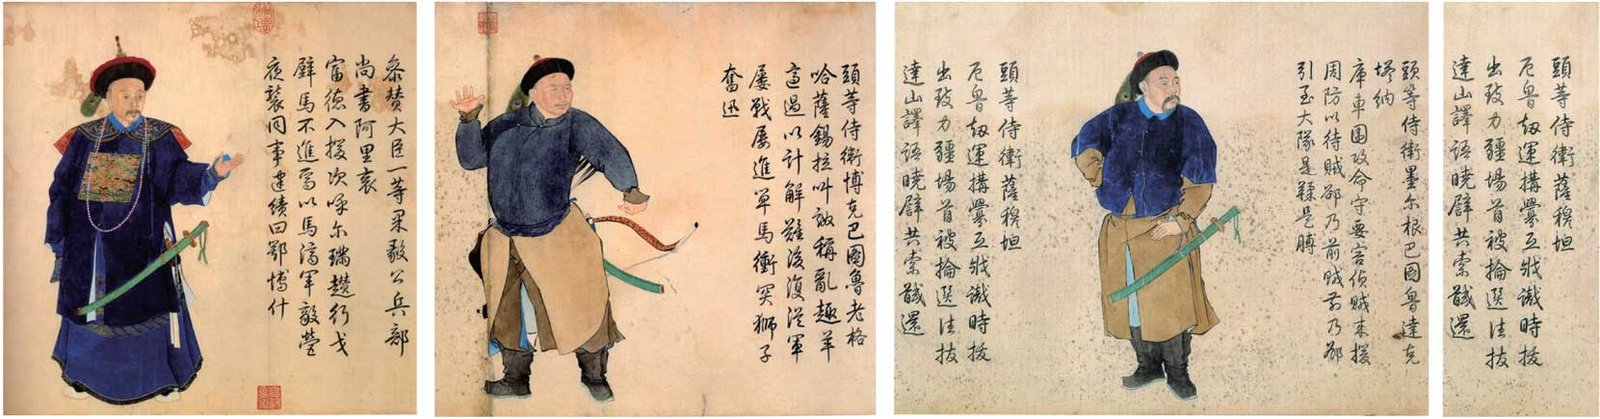 叅赞大臣一等果毅公兵部
尚書阿里衮
富德入援次呼尔璊趲行戈
壁馬不進焉以馬濟軍敵營
夜襲同事建績曰鄂博什
頭等侍衛博克巴圖魯老格
哈薩錫拉叫敵稱亂趣羊
適遇以計解難後復從軍
屢戰屢進單馬衝突獅子
奮迅
頭等侍衛墨尔根巴圖魯達克
塔納
庫車圍攻命守要害偵賊来援
周防以待賊郤乃前賊前乃郤
引至大隊是馘是膊
頭等侍衛薩穆坦
厄魯劫運搆釁互戕誠時拔
出致力疆場首被掄選法拔
達山譯語曉辟共索馘還
頭等侍衛薩穆坦
厄魯劫運搆釁互戕誠時拔
出致力疆場首被掄選法拔
達山譯語曉辟共索馘還